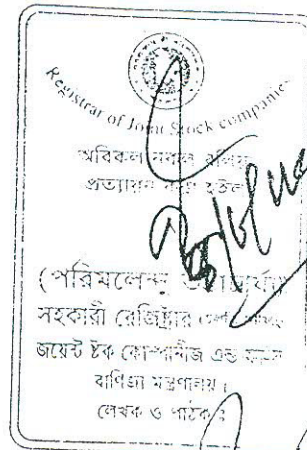 Registrar of Joint Stock companies
অবিকল নকল বলিয়া
প্রত্যায়ন করা হইল
(পরিমলেন্দু
সহকারী রেজিষ্ট্রার
জয়েন্ট ষ্টক কোম্পানীজ এন্ড ফার্মস
বাণিজ্য মন্ত্রণালয়।
লেখক ও পাঠক